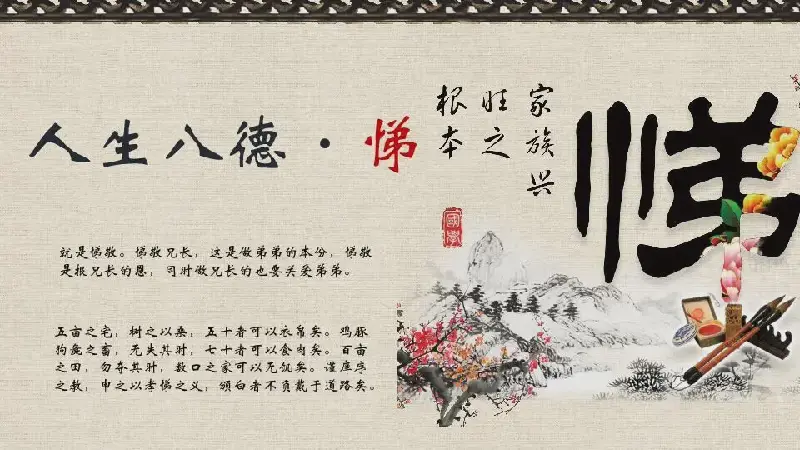 人生八德·悌
就是悌敬。悌敬兄长，这是做弟弟的本份，悌敬
是报兄长的恩，同时做兄长的也要关爱弟弟。
五亩之宅，树之以桑，五十者可以衣帛矣。鸡豚
狗彘之畜，无失其时，七十者可以食肉矣。百亩
之田，勿夺其时，数口之家可以无饥矣。谨庠序
之教，申之以孝悌之义，颁白者不负戴于道路矣。
家族兴
旺之
根本
國學
悌